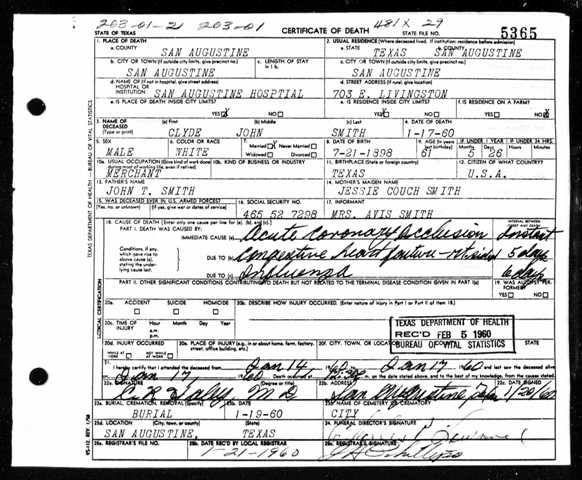 203-01-21 203-01 481X 29
STATE OF TEXAS CERTIFICATE OF DEATH STATE FILE NO. 5365
1. PLACE OF DEATH 2. USUAL RESIDENCE (Where deceased lived. If institution: residence before admission)
a. COUNTY SAN AUGUSTINE a. STATE TEXAS b. COUNTY SAN AUGUSTINE
b. CITY OR TOWN (If outside city limits, give precinct no.) c. LENGTH OF STAY in 1 b. c. CITY OR TOWN (If outside city limits, give precinct no.)
SAN AUGUSTINE SAN AUGUSTINE
d. NAME OF (If not in hospital, give street address) HOSPITAL OR INSTITUTION SAN AUGUSTINE HOSPTIAL d. STREET ADDRESS (If rural, give location) 703 E. LIVINGSTON
e. IS PLACE OF DEATH INSIDE CITY LIMITS? e. IS RESIDENCE INSIDE CITY LIMITS? f. IS RESIDENCE ON A FARM?
YES NO YES NO YES NO
3. NAME OF DECEASED (Type or print) (a) First (b) Middle (c) Last 4. DATE OF DEATH
CLYDE JOHN SMITH 1-17-60
5. SEX 6. COLOR OR RACE 7. Married Never Married Widowed Divorced 8. DATE OF BIRTH 9. AGE (In years last birthday) IF UNDER 1 YEAR IF UNDER 24 HRS.
MALE WHITE 7-21-1898 61 Months 5 Days 26 Hours Min.
10a. USUAL OCCUPATION (Give kind of work done during most of working life, even if retired) 10b. KIND OF BUSINESS OR INDUSTRY 11. BIRTHPLACE (State or foreign country) 12. CITIZEN OF WHAT COUNTRY?
MERCHANT TEXAS U.S.A.
13. FATHER'S NAME 14. MOTHER'S MAIDEN NAME
JOHN T. SMITH JESSIE COUCH SMITH
15. WAS DECEASED EVER IN U.S. ARMED FORCES? 16. SOCIAL SECURITY NO. 17. INFORMANT
(Yes, no, or unknown) (If yes, give war or dates of service) 465 52 7298 MRS. AVIS SMITH
18. CAUSE OF DEATH (Enter only one cause per line for (a), (b), and (c).) INTERVAL BETWEEN ONSET AND DEATH
PART I. DEATH WAS CAUSED BY:
IMMEDIATE CAUSE (a) Acute Coronary Occlusion Instant
Conditions, if any, which gave rise to above cause (a), stating the underlying cause last. DUE TO (b) Congestive heart failure - rt sided 5 days
DUE TO (c) Influenza 6 days
PART II. OTHER SIGNIFICANT CONDITIONS CONTRIBUTING TO DEATH BUT NOT RELATED TO THE TERMINAL DISEASE CONDITION GIVEN IN PART I(a) 19. WAS AUTOPSY PERFORMED?
YES NO
20a. ACCIDENT SUICIDE HOMICIDE 20b. DESCRIBE HOW INJURY OCCURRED. (Enter nature of injury in Part I or Part II of item 18.)
20c. TIME OF INJURY Hour Month Day Year a.m. p.m.
TEXAS DEPARTMENT OF HEALTH
REC'D FEB 5 1960
BUREAU OF VITAL STATISTICS
20d. INJURY OCCURRED WHILE AT WORK NOT WHILE AT WORK 20e. PLACE OF INJURY (e.g., in or about home, farm, factory, street, office building, etc.) 20f. CITY, TOWN, OR LOCATION
21. I hereby certify that I attended the deceased from Jan 14, 1960 to Jan 17 - 60 and last saw the deceased alive
on the date stated above, and to the best of my knowledge, from the causes stated.
22a. SIGNATURE (Degree or title) M D 22b. ADDRESS San Augustine, Texas 22c. DATE SIGNED 1/20/60
23a. BURIAL, CREMATION, REMOVAL (Specify) 23b. DATE 23c. NAME OF CEMETERY OR CREMATORY
BURIAL 1-19-60 CITY
23d. LOCATION (City, town, or county) (State) 24. FUNERAL DIRECTOR'S SIGNATURE
SAN AUGUSTINE, TEXAS
25a. REGISTRAR'S FILE NO. 25b. DATE REC'D BY LOCAL REGISTRAR 25c. REGISTRAR'S SIGNATURE
1-21-1960
TEXAS DEPARTMENT OF HEALTH—BUREAU OF VITAL STATISTICS
MEDICAL CERTIFICATION